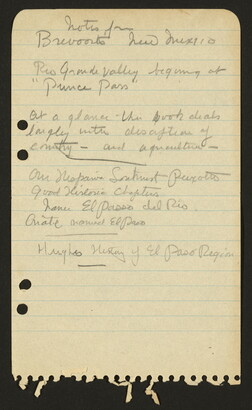 Notes from
Brevoorts New Mexico
Rio Grande Valley begins at
"Prince Pass"
At a glance this book deals
largely with description of
country - and agriculture -
Our Hispanic Southwest Peixotto
Good Historic Chapters
name El Paseo del Rio
Oñate named El Paso
Hughes History of El Paso Region